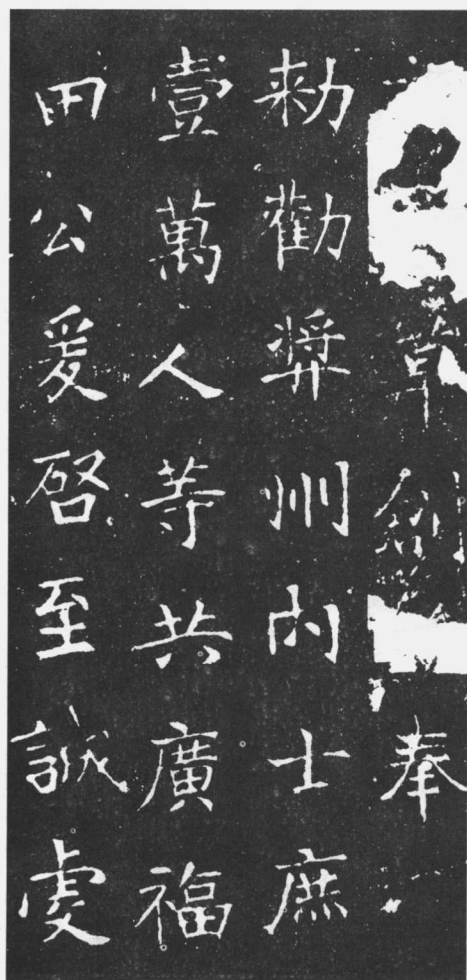 草創奉
勑勸奬州内士庶
壹萬人等共廣福
田公爰啓至誠虔